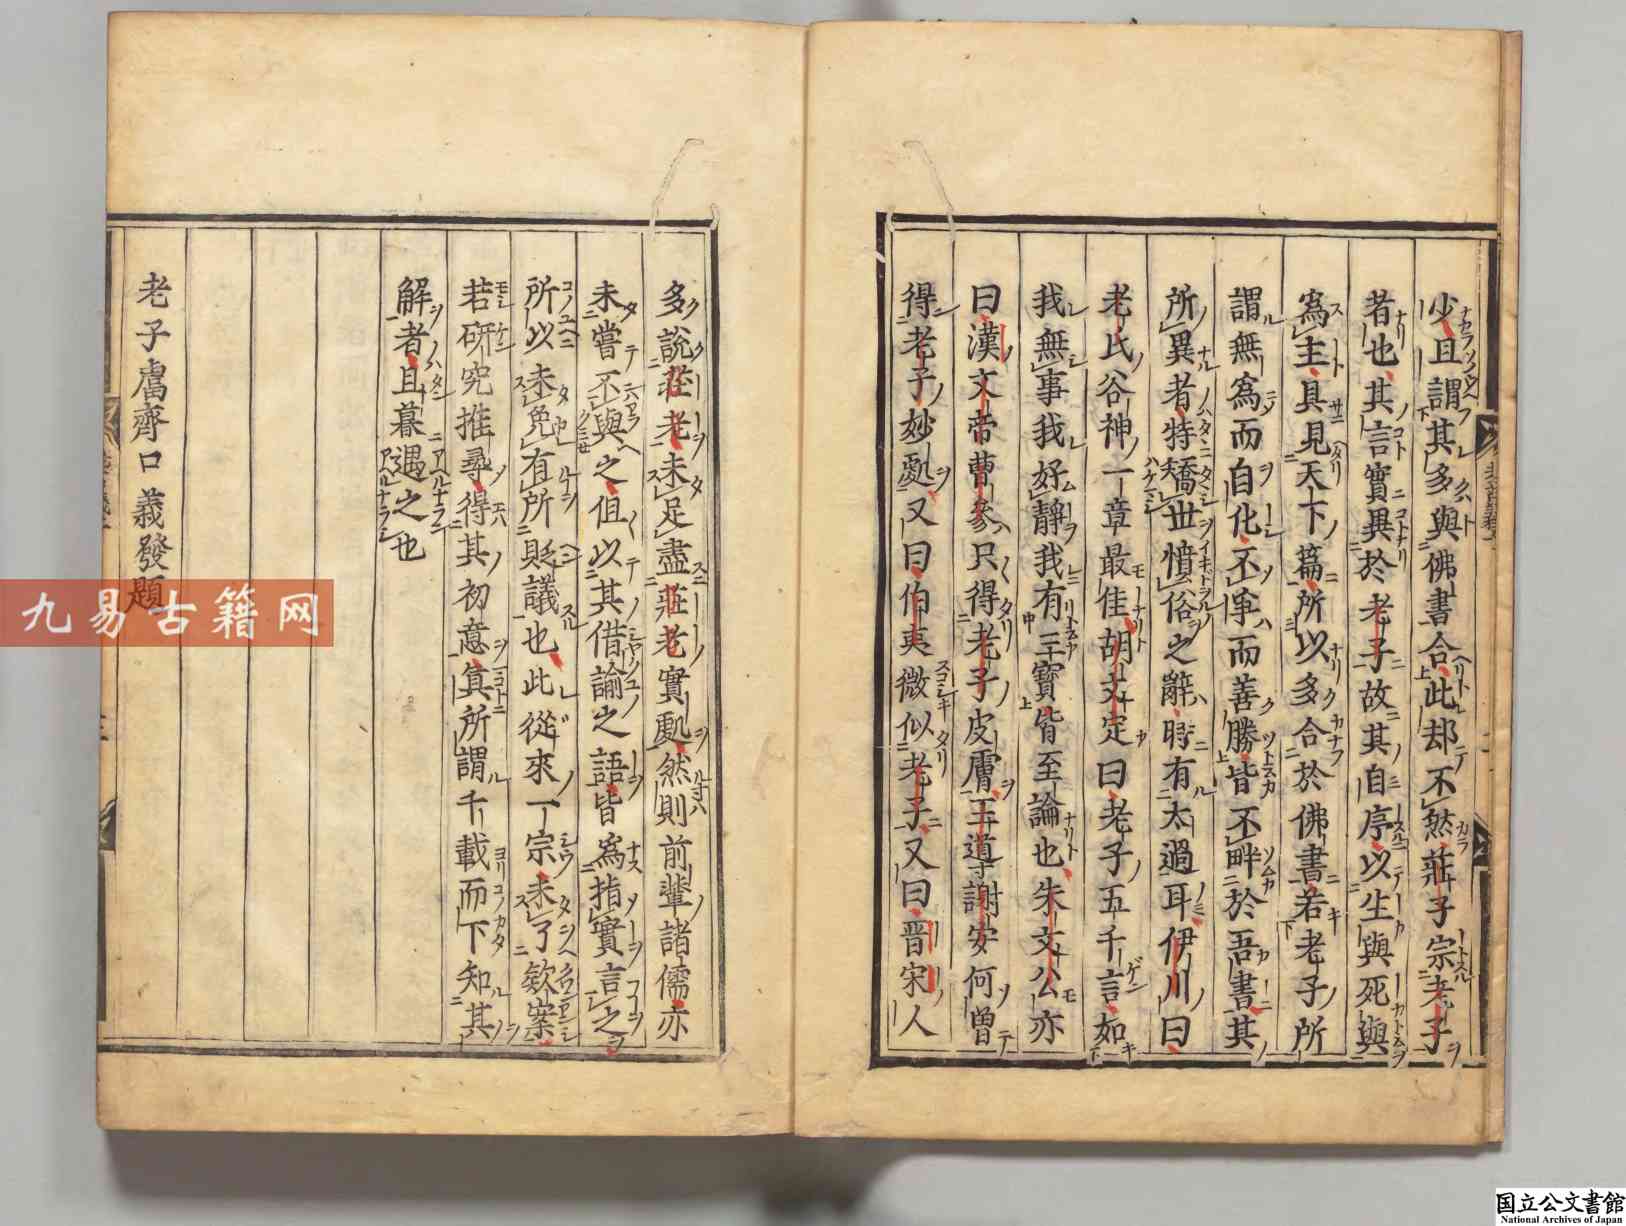 少且謂其多與佛書合此却不然莊子宗老子
者也其言實異於老子故其自序以生與死與
為主具見天下篇所以多合於佛書若老子所
謂無為而自化不爭而善勝皆不畔於吾書其
所異者特矯世憤俗之辭時有太過耳伊川曰
老氏谷神一章最佳胡文定曰老子五千言如
我無事我好靜我有三寶皆至論也朱文公亦
曰漢文帝曹參只得老子皮膚王導謝安何曾
得老子妙處又曰伯夷微似老子又曰晋宋人
多說莊老未足盡莊老實處然則前輩諸儒亦
未嘗不與之但以其借諭之語皆為指實言之
所以未免有所貶議也此從來一宗未了欸案
若研究推尋得其初意真所謂千載而下知其
解者且暮遇之也
老子鬳齊口義發題
九易古籍网
国立公文書館
National Archives of Japan